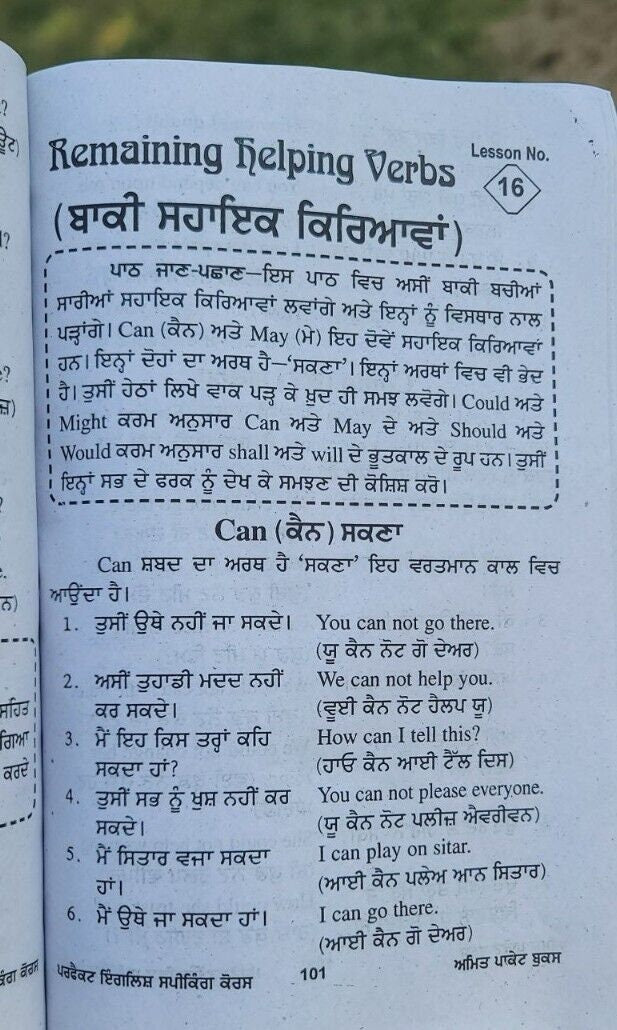 Remaining Helping Verbs
Lesson No.
16
(ਬਾਕੀ ਸਹਾਇਕ ਕਿਰਿਆਵਾਂ)
ਪਾਠ ਜਾਣ-ਪਛਾਣ—ਇਸ ਪਾਠ ਵਿਚ ਅਸੀਂ ਬਾਕੀ ਬਚੀਆਂ
ਸਾਰੀਆਂ ਸਹਾਇਕ ਕਿਰਿਆਵਾਂ ਲਵਾਂਗੇ ਅਤੇ ਇਨ੍ਹਾਂ ਨੂੰ ਵਿਸਥਾਰ ਨਾਲ
ਪੜ੍ਹਾਂਗੇ। Can (ਕੈਨ) ਅਤੇ May (ਮੇ) ਇਹ ਦੋਵੇਂ ਸਹਾਇਕ ਕਿਰਿਆਵਾਂ
ਹਨ। ਇਨ੍ਹਾਂ ਦੋਹਾਂ ਦਾ ਅਰਥ ਹੈ—‘ਸਕਣਾ’। ਇਨ੍ਹਾਂ ਅਰਥਾਂ ਵਿਚ ਵੀ ਭੇਦ
ਹੈ। ਤੁਸੀਂ ਹੇਠਾਂ ਲਿਖੇ ਵਾਕ ਪੜ੍ਹ ਕੇ ਖ਼ੁਦ ਹੀ ਸਮਝ ਲਵੋਗੇ। Could ਅਤੇ
Might ਕਰਮ ਅਨੁਸਾਰ Can ਅਤੇ May ਦੇ ਅਤੇ Should ਅਤੇ
Would ਕਰਮ ਅਨੁਸਾਰ shall ਅਤੇ will ਦੇ ਭੂਤਕਾਲ ਦੇ ਰੂਪ ਹਨ। ਤੁਸੀਂ
ਇਨ੍ਹਾਂ ਸਭ ਦੇ ਫਰਕ ਨੂੰ ਦੇਖ ਕੇ ਸਮਝਣ ਦੀ ਕੋਸ਼ਿਸ਼ ਕਰੋ।
Can (ਕੈਨ) ਸਕਣਾ
Can ਸ਼ਬਦ ਦਾ ਅਰਥ ਹੈ ‘ਸਕਣਾ’ ਇਹ ਵਰਤਮਾਨ ਕਾਲ ਵਿਚ
ਆਉਂਦਾ ਹੈ।
1. ਤੁਸੀਂ ਉਥੇ ਨਹੀਂ ਜਾ ਸਕਦੇ। You can not go there.
(ਯੂ ਕੈਨ ਨੋਟ ਗੋ ਦੇਅਰ)
2. ਅਸੀਂ ਤੁਹਾਡੀ ਮਦਦ ਨਹੀਂ We can not help you.
ਕਰ ਸਕਦੇ। (ਵੂਈ ਕੈਨ ਨੋਟ ਹੈਲਪ ਯੂ)
3. ਮੈਂ ਇਹ ਕਿਸ ਤਰ੍ਹਾਂ ਕਹਿ How can I tell this?
ਸਕਦਾ ਹਾਂ? (ਹਾਓ ਕੈਨ ਆਈ ਟੈੱਲ ਦਿਸ)
4. ਤੁਸੀਂ ਸਭ ਨੂੰ ਖੁਸ਼ ਨਹੀਂ ਕਰ You can not please everyone.
ਸਕਦੇ। (ਯੂ ਕੈਨ ਨੋਟ ਪਲੀਜ਼ ਐਵਰੀਵਨ)
5. ਮੈਂ ਸਿਤਾਰ ਵਜਾ ਸਕਦਾ I can play on sitar.
ਹਾਂ। (ਆਈ ਕੈਨ ਪਲੇਅ ਆਨ ਸਿਤਾਰ)
6. ਮੈਂ ਉਥੇ ਜਾ ਸਕਦਾ ਹਾਂ। I can go there.
(ਆਈ ਕੈਨ ਗੋ ਦੇਅਰ)
ਪਰਫੈਕਟ ਇੰਗਲਿਸ਼ ਸਪੀਕਿੰਗ ਕੋਰਸ 101 ਅਮਿਤ ਪਾਕੇਟ ਬੁਕਸ